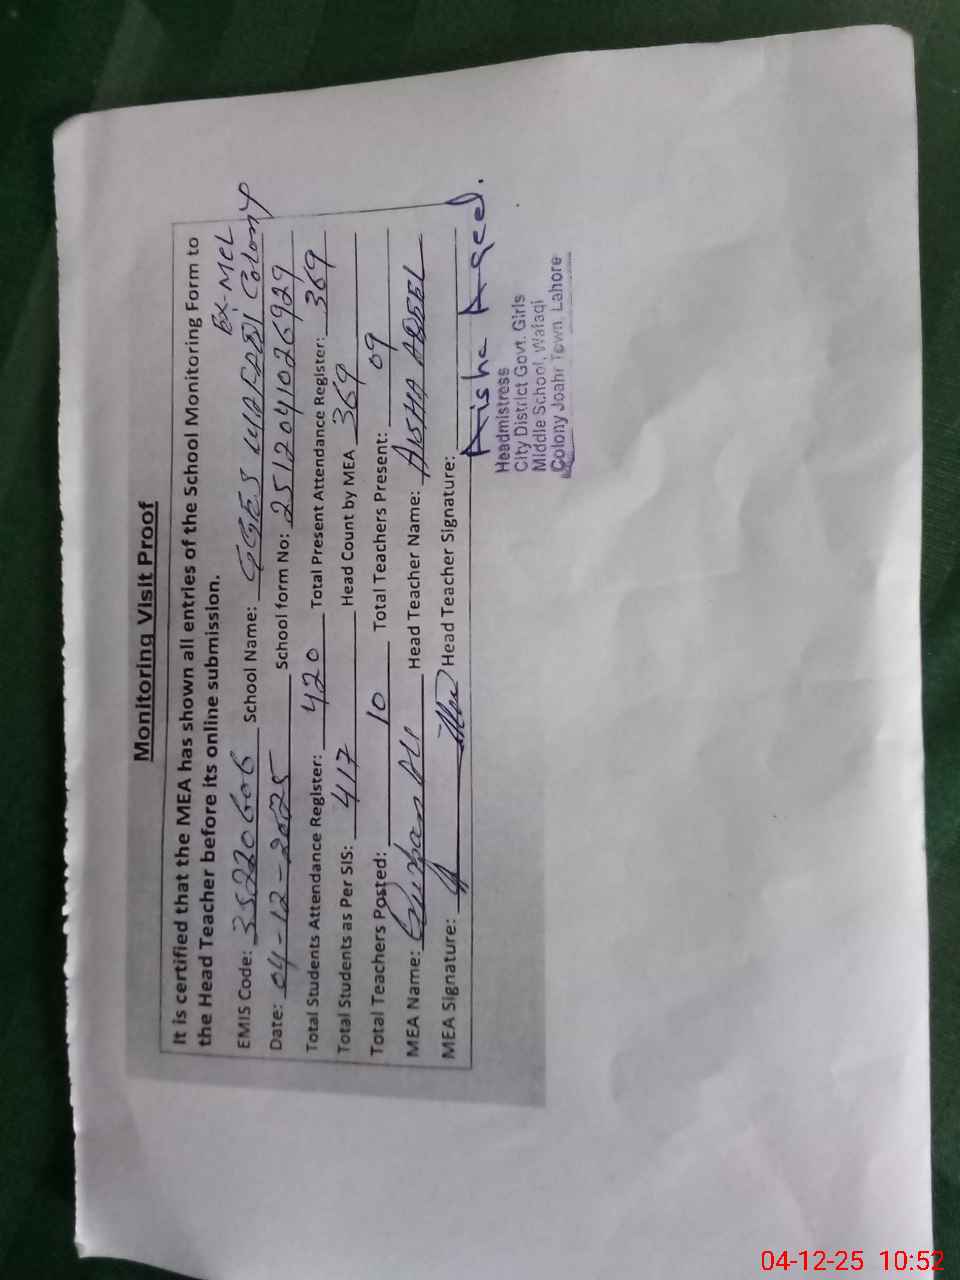 Monitoring Visit Proof
It is certified that the MEA has shown all entries of the School Monitoring Form to
the Head Teacher before its online submission.
EMIS Code: 35220606 School Name: GGES WAFAQI Colony EX-MCL
Date: 04-12-2025 School form No: 251204102 6929
Total Students Attendance Register: 420 Total Present Attendance Register: 369
Total Students as Per SIS: 417 Head Count by MEA 369
Total Teachers Posted: 10 Total Teachers Present: 09
MEA Name: Ali Head Teacher Name: AISHA AQEEL
MEA Signature: Head Teacher Signature:
Aisha Aqeel.
Headmistress
City District Govt. Girls
Middle School, Wafaqi
Colony Joahr Town, Lahore
04-12-25 10:52